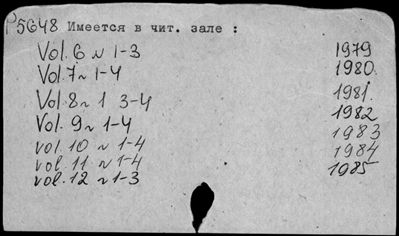 P5648 Имеется в чит. зале :
Vol. 6 N 1-3 1979
Vol. 7 N 1-4 1980.
Vol 8 N 1 3-4 1981.
Vol. 9 N 1-4 1982
vol. 10 N 1-4 1983
vol. 11 N 1-4 1984
vol. 12 N 1-3 1985